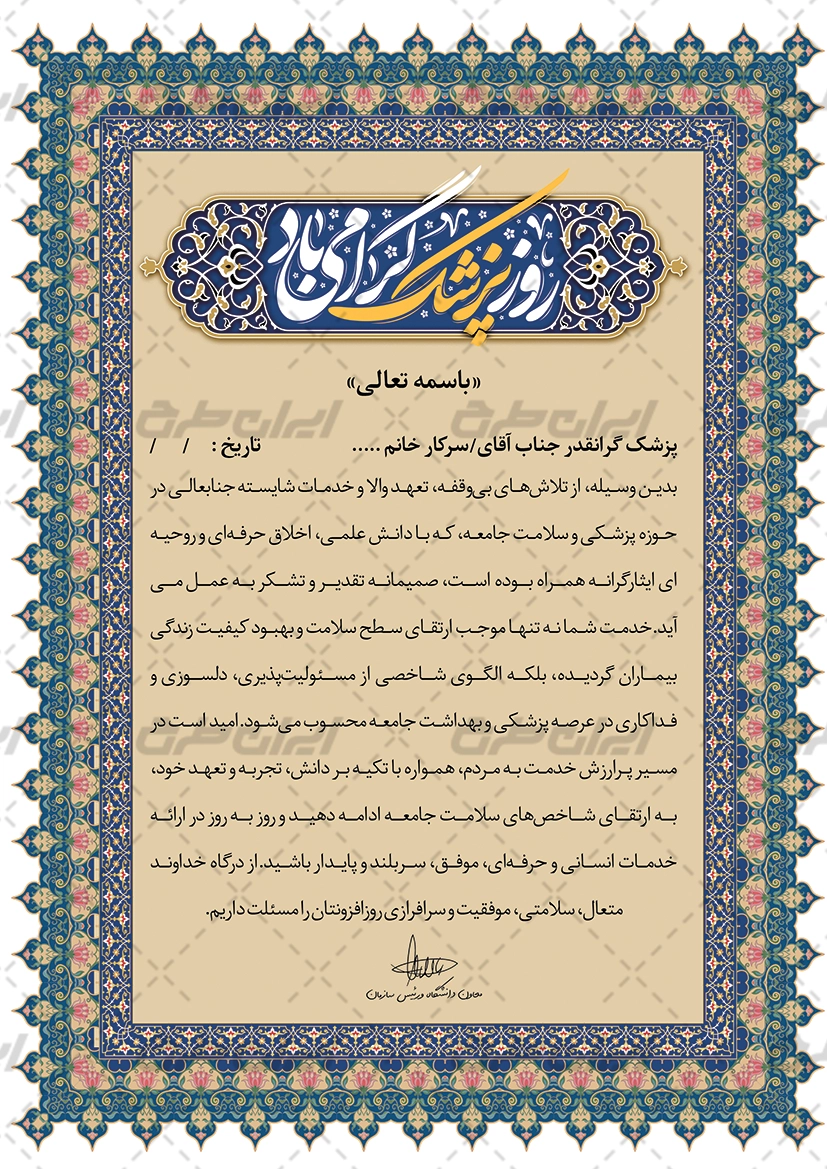 روز پزشک گرامی باد
«باسمه تعالی»
پزشک گرانقدر جناب آقای/سرکار خانم ..... تاریخ : / /
بدین وسیله، از تلاش‌های بی‌وقفه، تعهد والا و خدمات شایسته جنابعالی در
حوزه پزشکی و سلامت جامعه، که با دانش علمی، اخلاق حرفه‌ای و روحیه
ای ایثارگرانه همراه بوده است، صمیمانه تقدیر و تشکر به عمل می
آید. خدمت شما نه تنها موجب ارتقای سطح سلامت و بهبود کیفیت زندگی
بیماران گردیده، بلکه الگوی شاخصی از مسئولیت‌پذیری، دلسوزی و
فداکاری در عرصه پزشکی و بهداشت جامعه محسوب می‌شود. امید است در
مسیر پرارزش خدمت به مردم، همواره با تکیه بر دانش، تجربه و تعهد خود،
به ارتقای شاخص‌های سلامت جامعه ادامه دهید و روز به روز در ارائه
خدمات انسانی و حرفه‌ای، موفق، سربلند و پایدار باشید. از درگاه خداوند
متعال، سلامتی، موفقیت و سرافرازی روزافزونتان را مسئلت داریم.
معاون دانشگاه و رئیس سازمان
ایران طرح